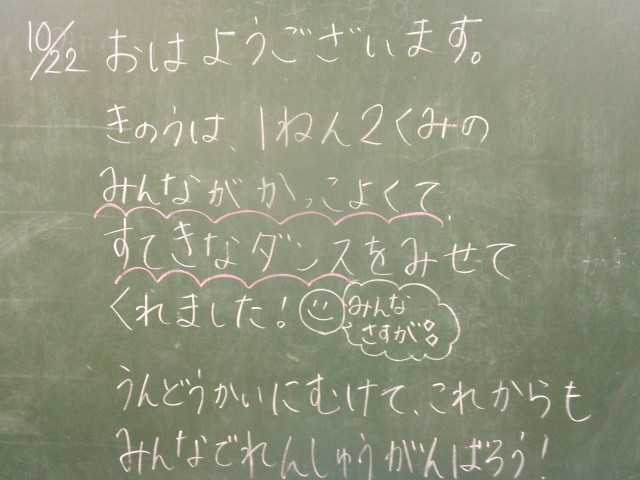 10/22 おはようございます。
きのうは、1ねん2くみの
みんながかっこよくて、
すてきなダンスをみせて
くれました!
みんな
さすが!!
うんどうかいにむけて、これからも
みんなでれんしゅうがんばろう!